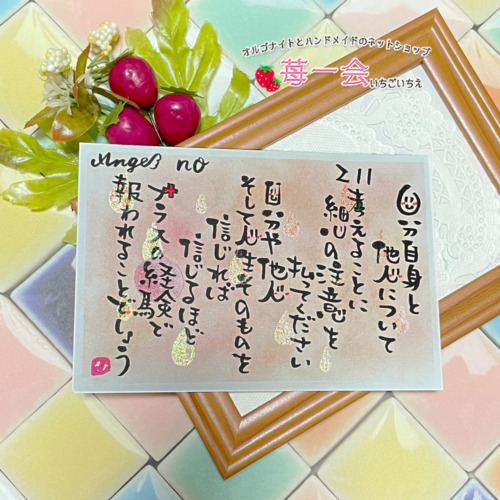 オルゴナイトとハンドメイドのネットショップ
苺一会 いちごいちえ
Angel no 211
自分自身と
他人について
考えることに
細心の注意を
払ってください
自分や他人
そして人生そのものを
信じれば
信じるほど
プラスの経験で
報われることでしょう